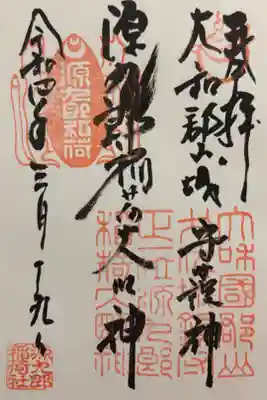 奉拝
大和郡山城 守護神
源九郎稲荷大明神
令和四年三月十九日
源九郎稲荷
大和國郡山
正一位源九郎
源九郎
稲荷社